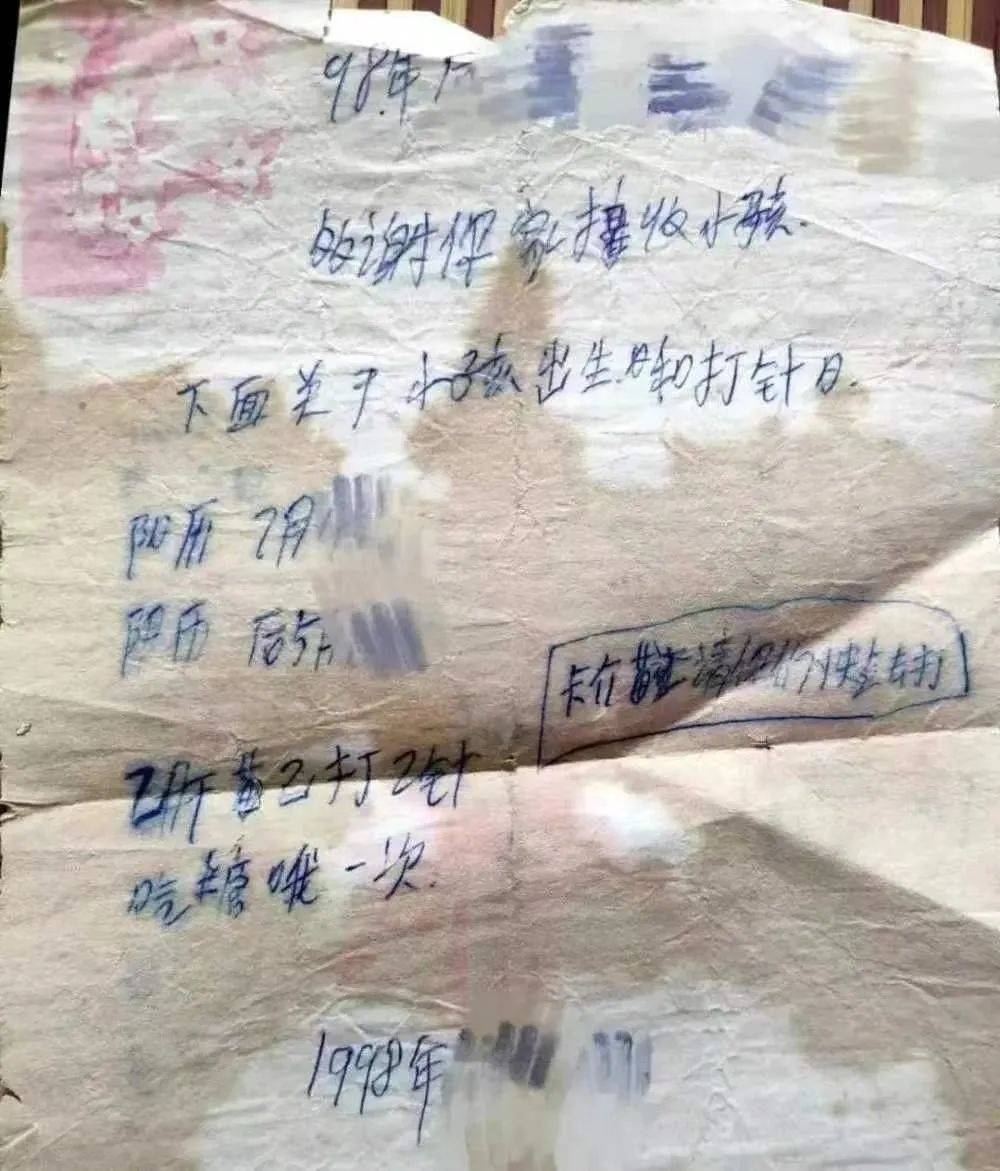 98年
感谢你家接收小孩.
下面关于小孩出生日和打针日.
阳历 7月
阴历 后5月
卡介苗 请你们 打
乙肝苗已打2针
吃糖 一次.
1998年